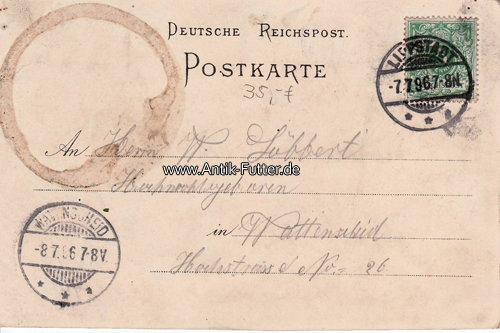 DEUTSCHE REICHSPOST.
POSTKARTE
LIPPSTADT
-7.7.96.7-8N.
35,-
An Herrn W. Löbbert
www.Antik-Futter.de
in Wattenscheid
WATTENSCHEID
-8.7.96 7-8V.
No 26